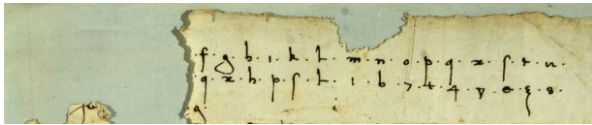 f. g. h. i. k. l. m. n. o. p. q. x. s. t. u.
q. x. h. p. s. l. i. b. 7. t. 4. y. e. g. 8.